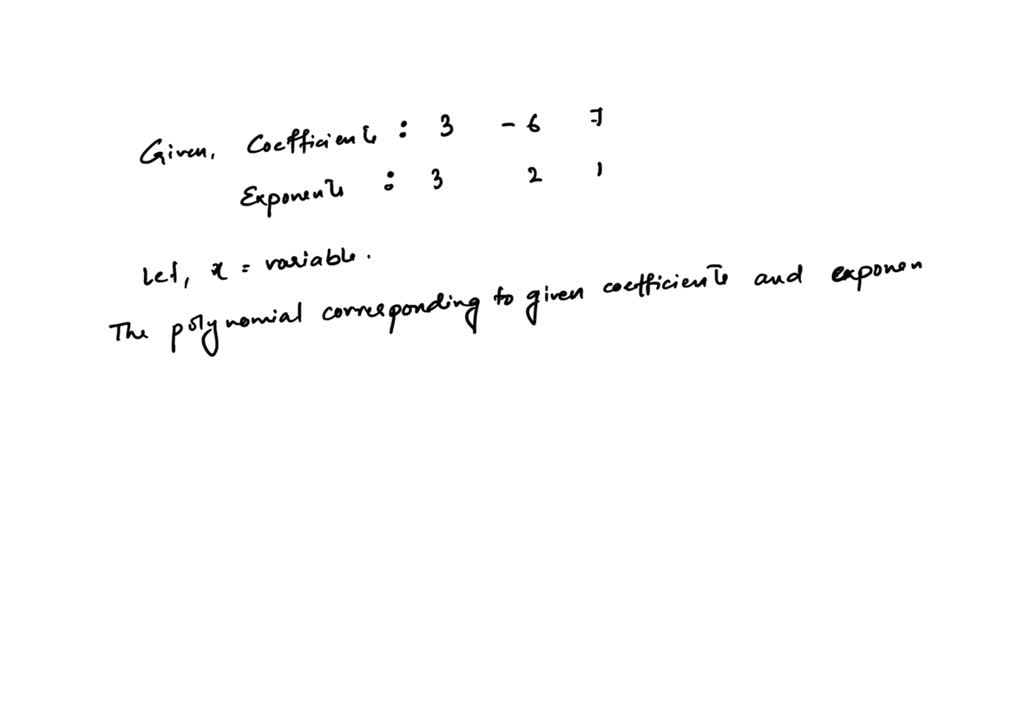 Given, Coefficients : 3 -6 7
Exponents : 3 2 1
Let, x = variable.
The polynomial corresponding to given coefficients and exponen